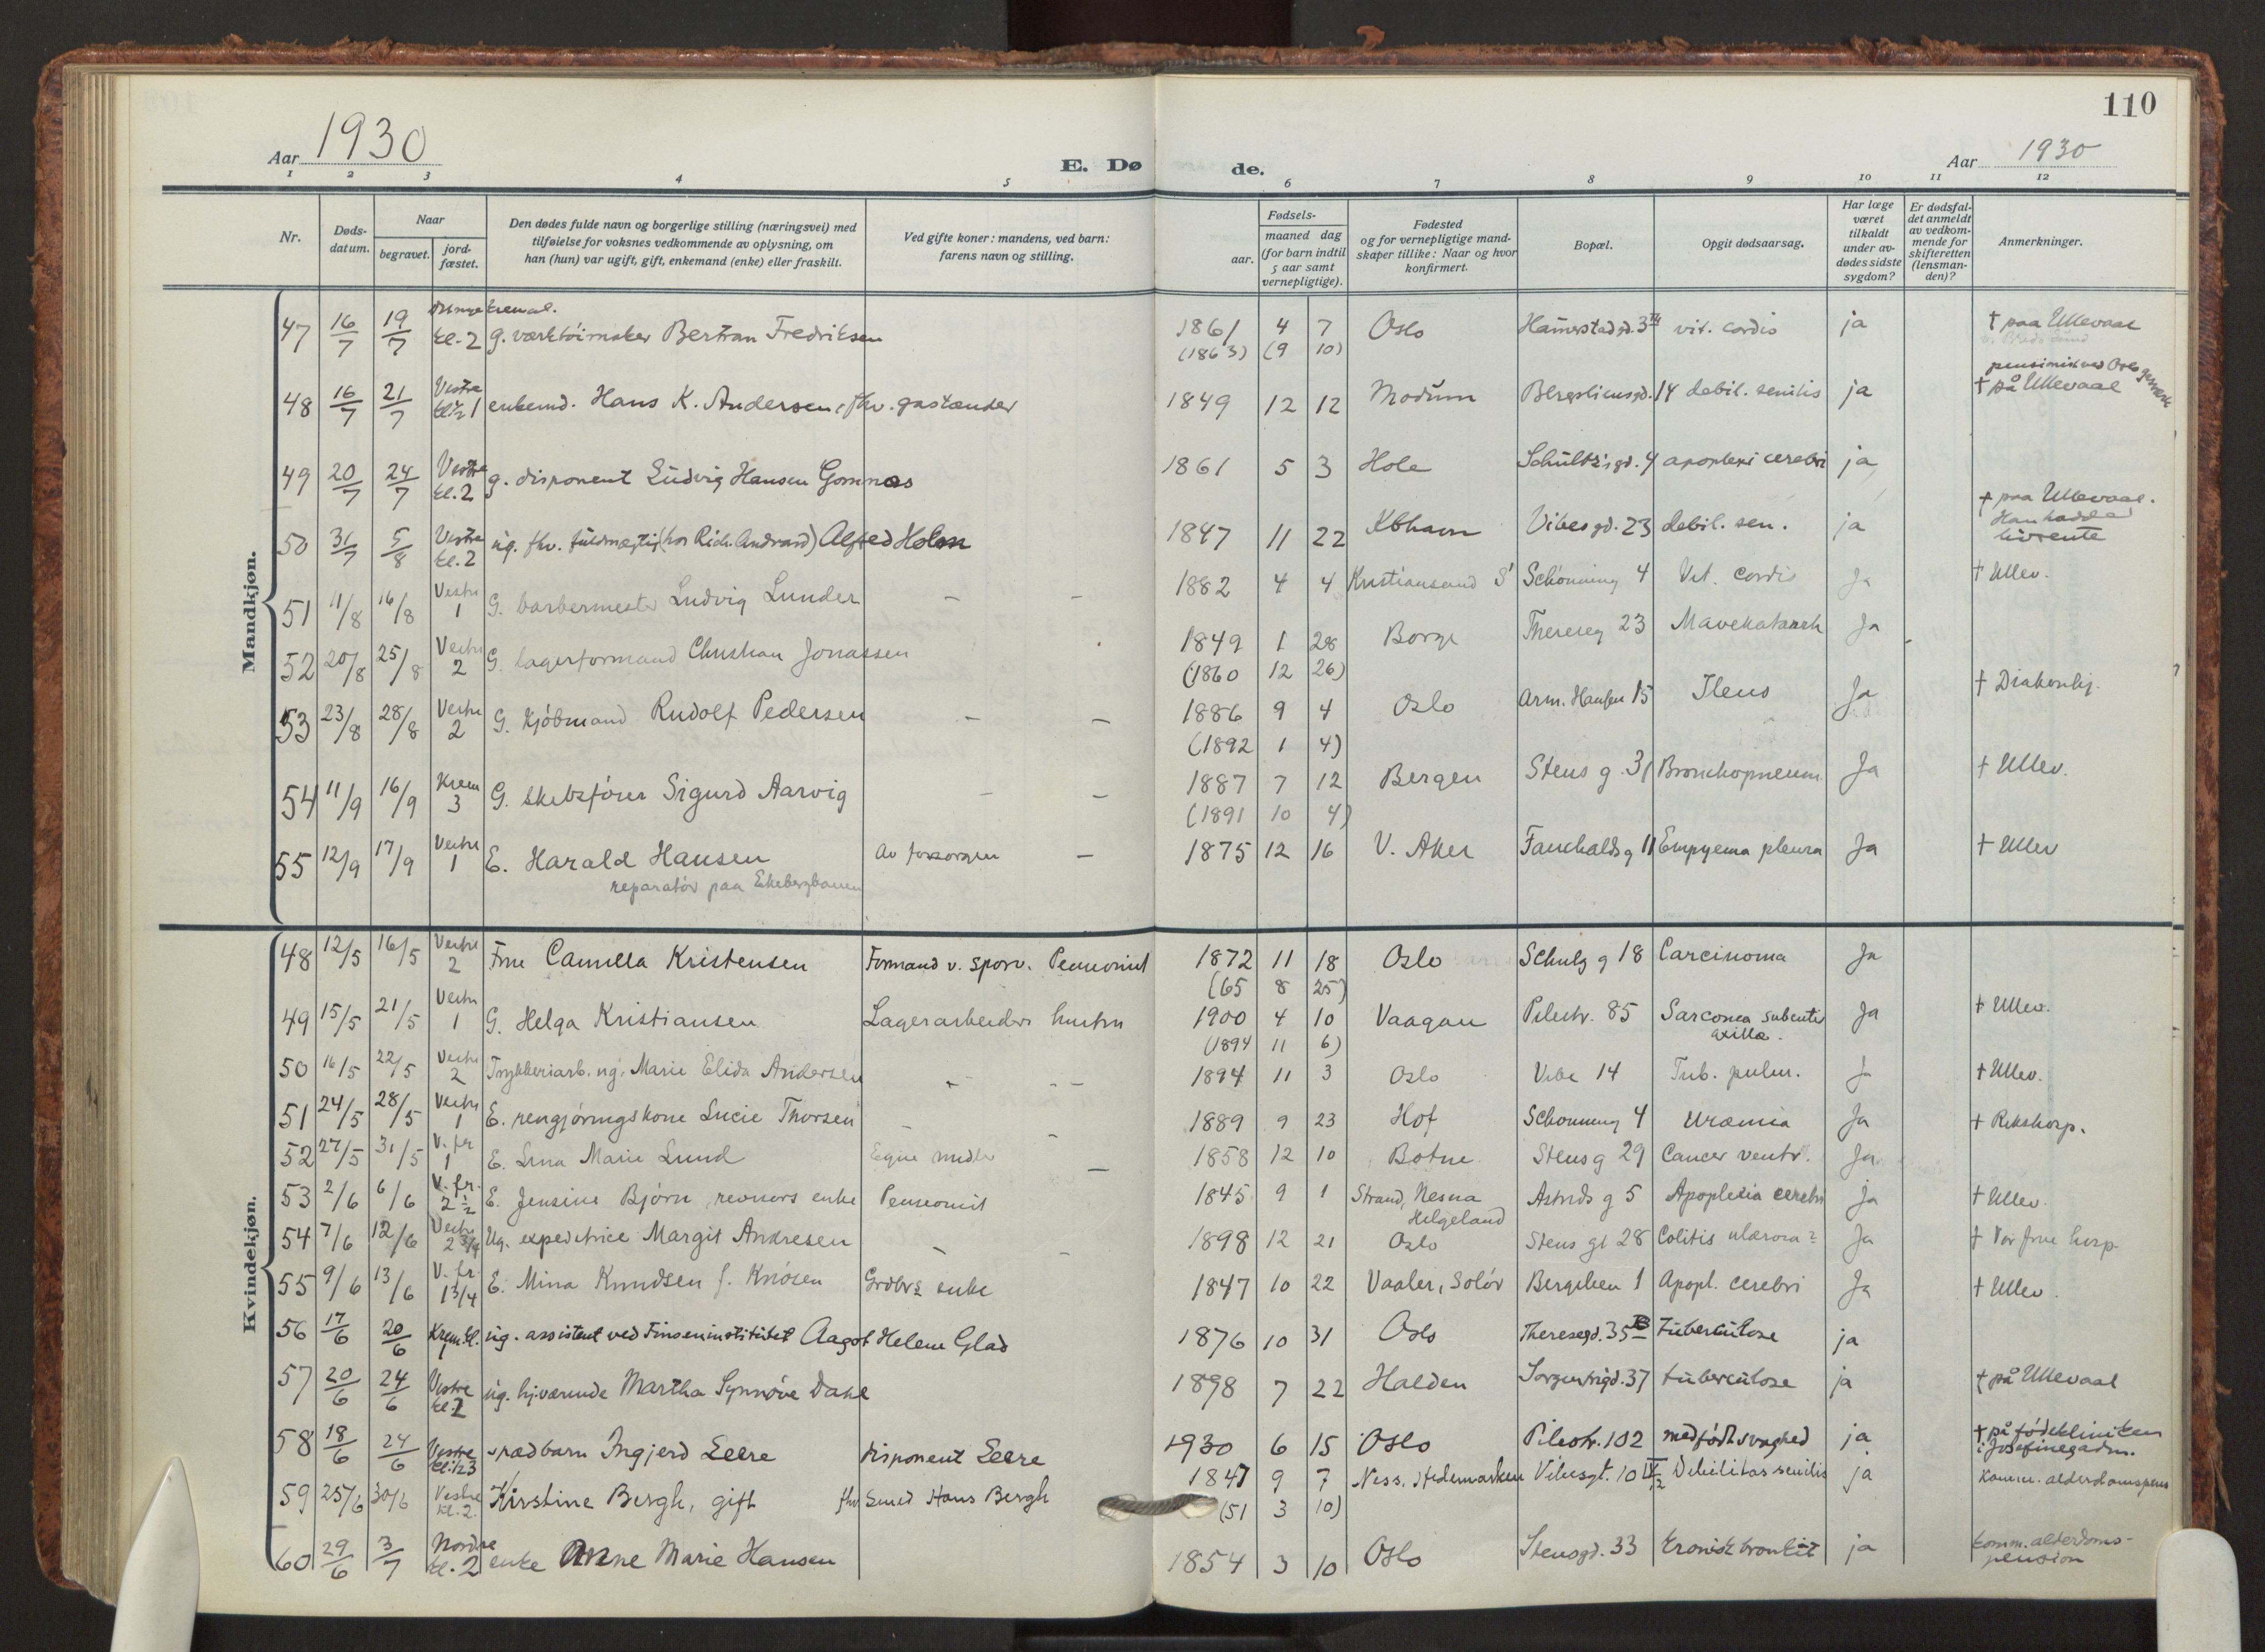 110
Aar 1930
E. Dø de.
Aar 1930
1 2 3 4 5 6 7 8 9 10 11 12
Nr.
Døds-
datum.
Naar
begravet.
jord-
fæstet.
Den dødes fulde navn og borgerlige stilling (næringsvei) med
tilføielse for voksnes vedkommende av oplysning, om
han (hun) var ugift, gift, enkemand (enke) eller fraskilt.
Ved gifte koner: mandens, ved barn:
farens navn og stilling.
Fødsels-
aar.
maaned dag
(for barn indtil
5 aar samt
vernepligtige).
Fødested
og for vernepligtige mand-
skaper tillike: Naar og hvor
konfirmert.
Bopæl.
Opgit dødsaarsag.
Har læge
været
tilkaldt
under av-
dødes sidste
sygdom?
Er dødsfal-
det anmeldt
av vedkom-
mende for
skifteretten
(lensman-
den)?
Anmerkninger.
Mandkjøn.
47 16/7 19/7 kl. 2 g. værktøimaker Bertran Fredriksen 1861 4 7 Oslo vit. cordis ja † paa Ullevaal
(1863) (9 10)
48 16/7 21/7 Vestre enkemd. Hans K. Andersen, fhv. gastænder 1849 12 12 Modum Bergsliensgd. 14 debil. senilis ja † på Ullevaal
49 20/7 24/7 Vestre kl. 2 g. disponent Ludvig Hansen Gomnæs 1861 5 3 Hole Schultz's gd. 4 apoplexi cerebri ja
50 31/7 5/8 Vestre kl. 2 ug. fhv. fuldmægtig (hos Rich. Andvard) Alfred Holm 1847 11 22 Kbhavn Vibesgd. 23 debil. sen. ja † paa Ullevaal.
Han hadde
livrente
51 11/8 16/8 Vestre 1 G. barbermester Ludvig Lunder - - 1882 4 4 Kristiansand S Schønning 4 Vit. cordis Ja † Ullev.
52 20/8 25/8 Vestre 2 G. lagerformand Christian Jonassen 1849 1 28 Borge Thereseg 23 Mavekatarrh Ja
(1860 12 26)
53 23/8 28/8 Vestre 2 G. Kjøbmand Rudolf Pedersen - - 1886 9 4 Oslo Arm. Hansen 15 Ileus Ja † Diakonhj.
(1892 1 4)
54 11/9 16/9 Krem 3 G. skibsfører Sigurd Aarvig - - 1887 7 12 Bergen Stens g. 31 Bronchopneum. Ja † Ullev.
(1891 10 4)
55 12/9 17/9 Vestre 1 E. Harald Hansen Av forsorgen - 1875 12 16 V. Aker Fauchalds g 11 Empyema pleura Ja † Ullev
reparatør paa Ekebergbanen
Kvindekjøn.
48 12/5 16/5 Vestre 2 Frue Camilla Kristensen Formand v. sporv. Pensionist 1872 11 18 Oslo Schulz g 18 Carcinoma Ja
(65 8 25)
49 15/5 21/5 Vestre 1 G. Helga Kristiansen Lagerarbeiders hustru 1900 4 10 Vaagan Pilestr. 85 Sarcoma subcutis Ja † Ullev.
axilla.
(1894 11 6)
50 16/5 22/5 Vestre 2 Trykkeriarb. ug. Marie Elida Andersen - - - 1894 11 3 Oslo Vibe 14 Tub. pulm. Ja † Ullev.
51 24/5 28/5 Vestre 1 E. rengjøringskone Lucie Thorsen - - 1889 9 23 Hof Schønning 4 Uræmia Ja † Rikshosp.
52 27/5 31/5 V. fr 1 E. Lina Marie Lund Egne midler - 1858 12 10 Botne Stensg 29 Cancer ventr. Ja
53 2/6 6/6 V. fr. 2 1/2 E. Jensine Bjørn, revisors enke Pensionist 1845 9 1 Strand, Nesna Astrids g 5 Apoplexia cerebri Ja † Ullev.
Helgeland
54 7/6 12/6 Vestre 2 3/4 Ug. expeditrice Margit Andresen - - 1898 12 21 Oslo Stens gt 28 Colitis ulcerosa? Ja † Vor frue hosp.
55 9/6 13/6 V. fr. 1 3/4 E. Mina Knudsen f. Knøsen Grdbr.s enke 1847 10 22 Vaaler, Solør Bergslien 1 Apopl. cerebri Ja † Ullev.
56 17/6 20/6 Krem. kl. 1 ug. assistent ved Finseninstitutet Aagot Helene Glad 1876 10 31 Oslo Theresegd. 35 tuberkulose ja
57 20/6 24/6 Vestre kl. 2 ug. hj.værende Martha Synnøve Dahl 1898 7 22 Halden Sorgenfrigd. 37 tuberkulose ja † på Ullevaal
58 18/6 24/6 Vestre spædbarn Ingjerd Leere disponent Leere 1930 6 15 Oslo Pilestr. 102 medfødt svaghed ja † på fødekliniken
i Josefinegaden.
59 25/6 30/6 Vestre kl. 2. Kirstine Bergh, gift fhv Smed Hans Bergh 1847 9 7 Ness. Hedemarken Vibesgt. 10 Debilitas senilis ja Komm. alderdomspens
(51 3 10)
60 29/6 3/7 Nordre kl. 2 enke Anne Marie Hansen 1854 3 10 Oslo Stensgd. 33 kronisk bronkit ja komm. alderdoms-
pension